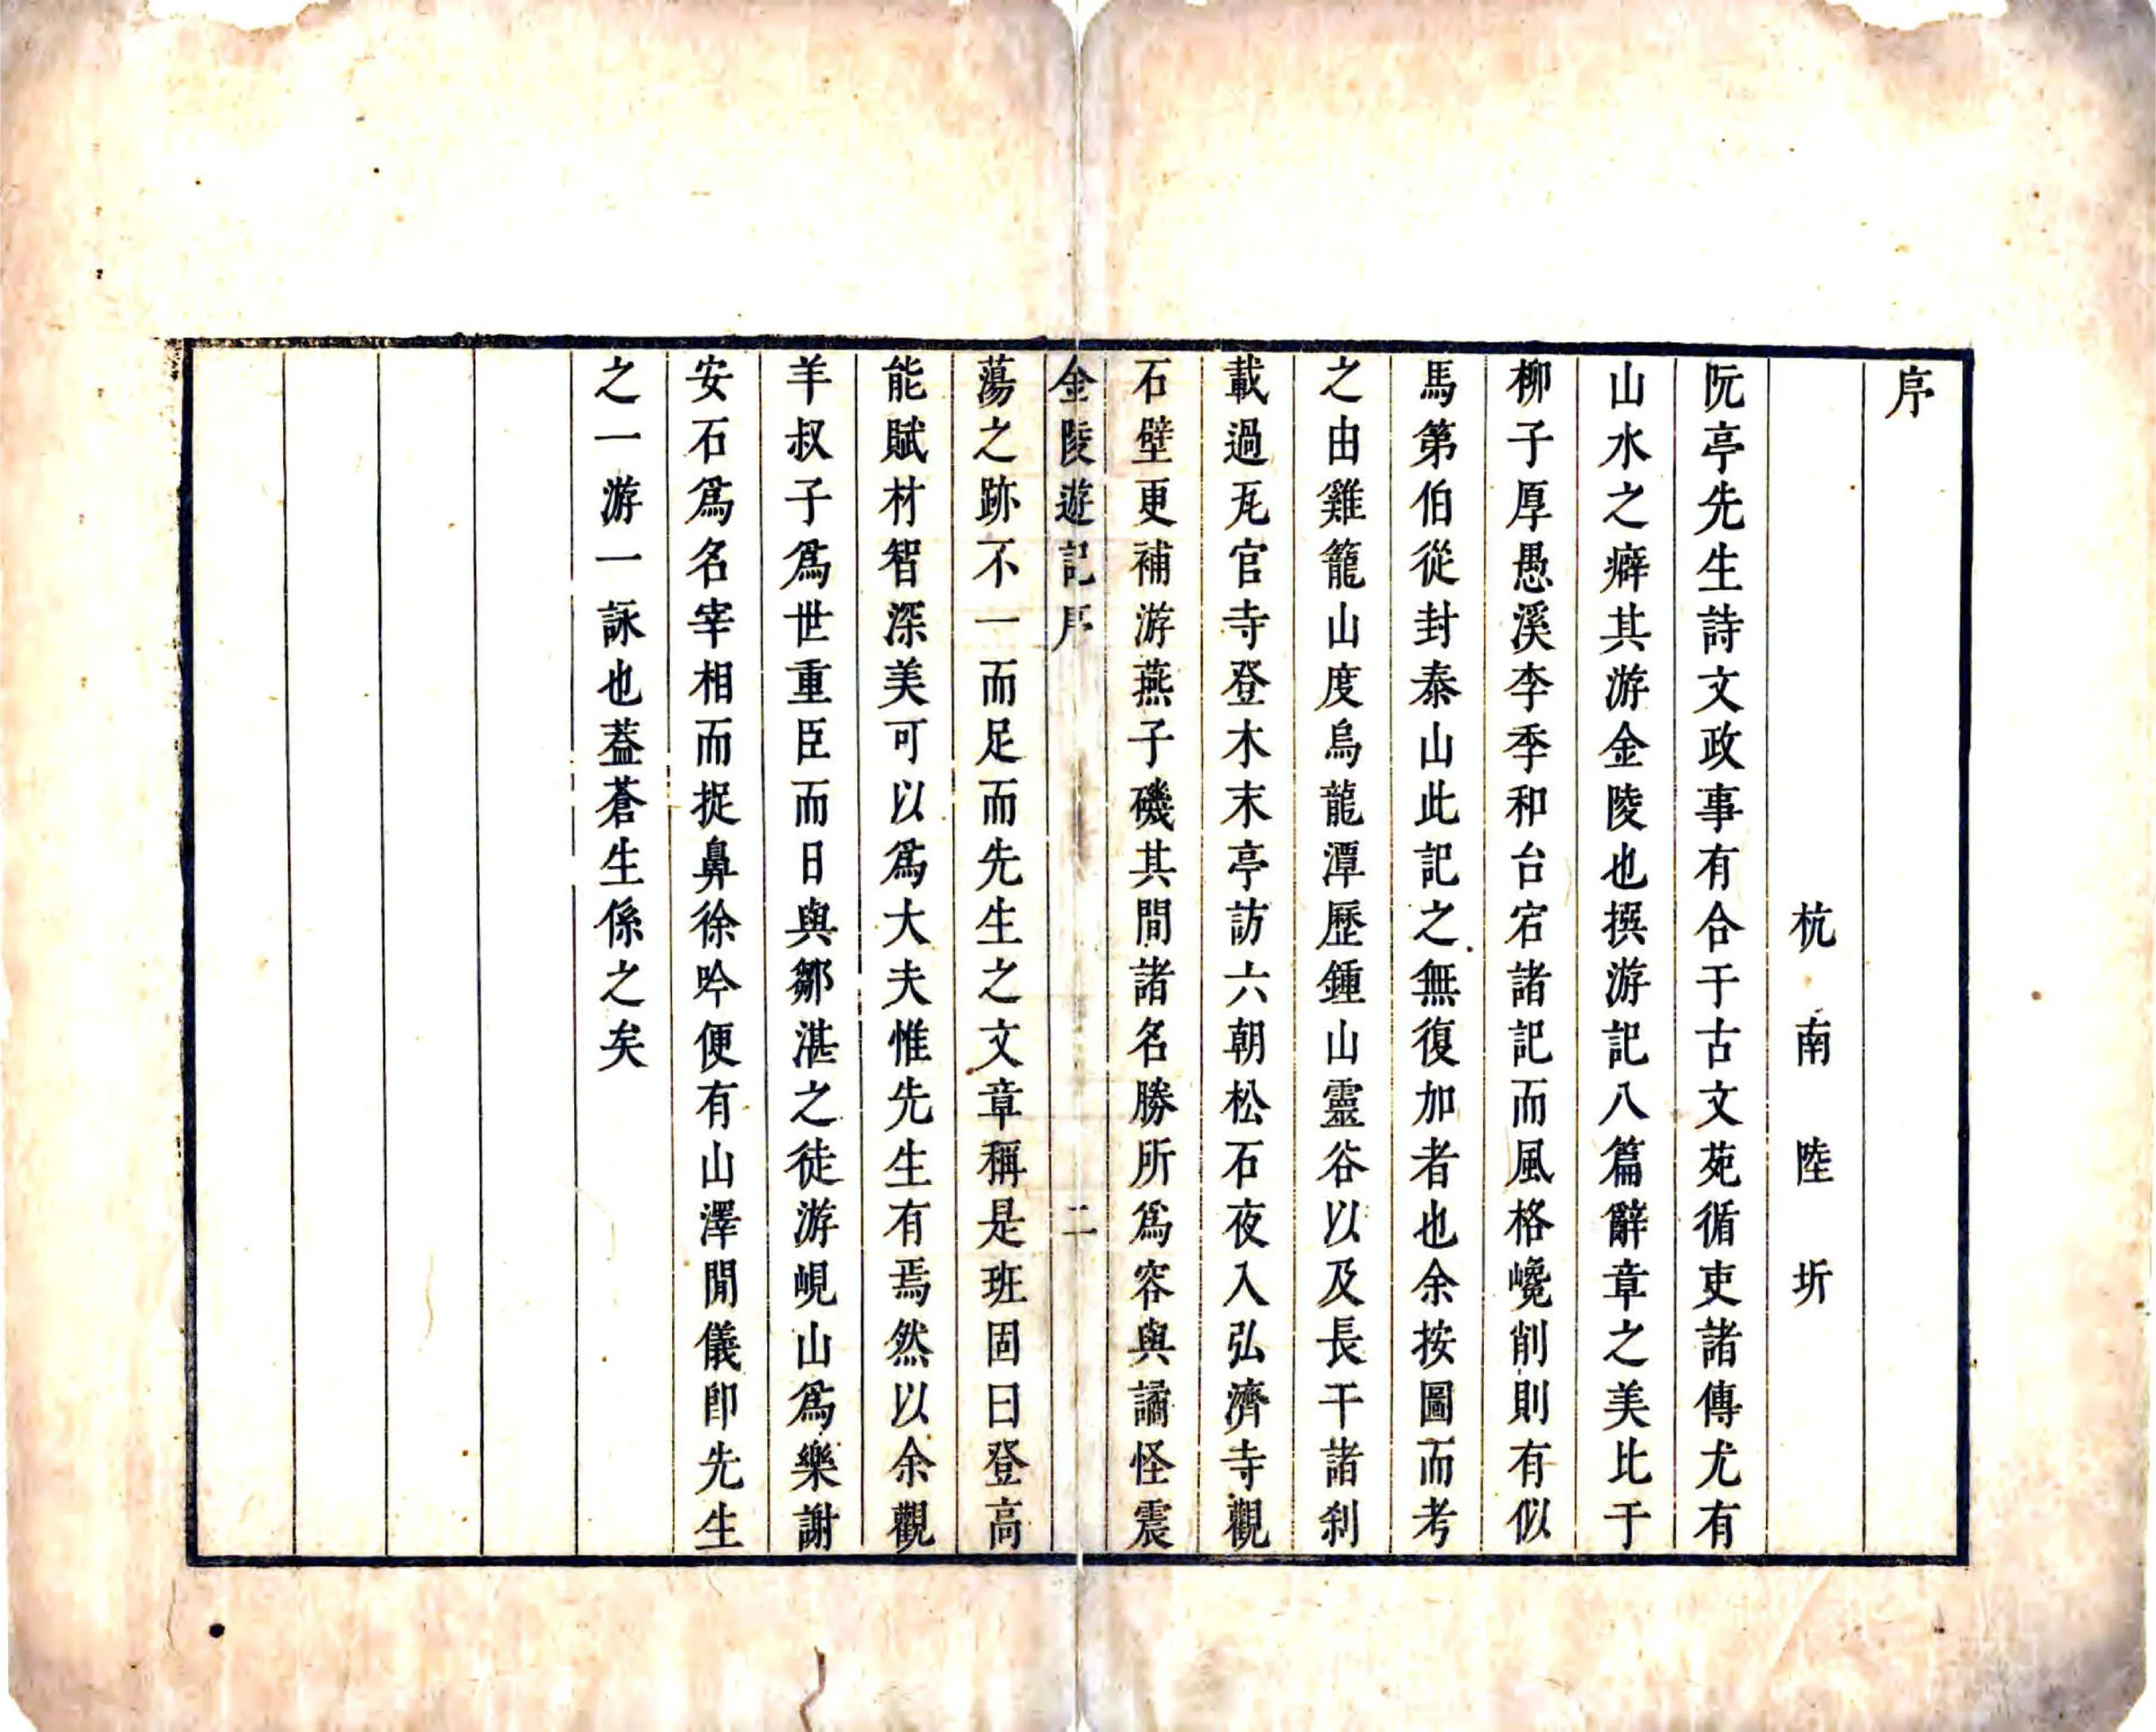 序
杭南陸圻
阮亭先生詩文政事有合于古文苑循吏諸傳尤有
山水之癖其游金陵也撰游記八篇辭章之美比于
柳子厚愚溪李季和台宕諸記而風格巉削則有似
馬第伯從封泰山此記之無復加者也余按圖而考
之由雞籠山度烏龍潭歷鍾山靈谷以及長干諸刹
載過瓦官寺登木末亭訪六朝松石夜入弘濟寺觀
石壁更補游燕子磯其間諸名勝所爲容與譎怪震
金陵遊記序 二
蕩之跡不一而足而先生之文章稱是班固曰登高
能賦材智深美可以爲大夫惟先生有焉然以余觀
羊叔子爲世重臣而日與鄒湛之徒游峴山爲樂謝
安石爲名宰相而捉鼻徐吟便有山澤閒儀卽先生
之一游一詠也葢蒼生係之矣